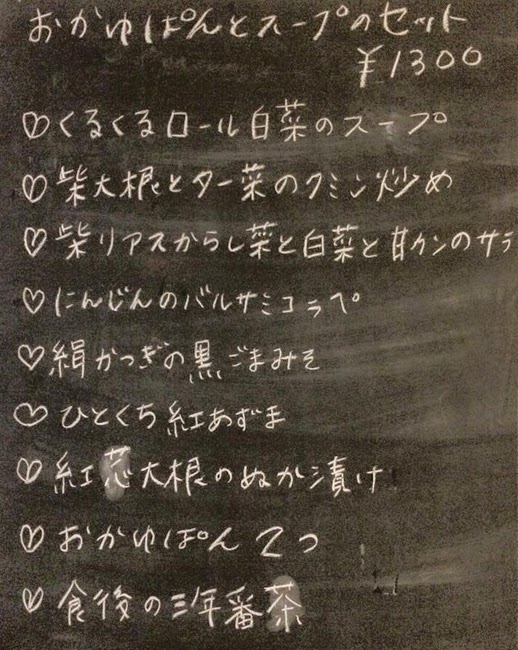 おかゆぱんとスープのセット
¥1300
♡くるくるロール白菜のスープ
♡柴大根とター菜のクミン炒め
♡柴リアスからし菜と白菜と甘カンのサラ
♡にんじんのバルサミコラペ
♡絹かつぎの黒ごまみそ
♡ひとくち紅あずま
♡紅芯大根のぬか漬け
♡おかゆぱん2つ
♡食後の三年番茶